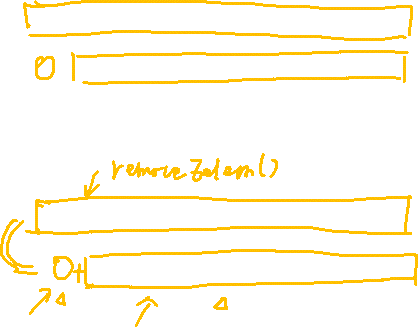 0
remove2elem()
0+